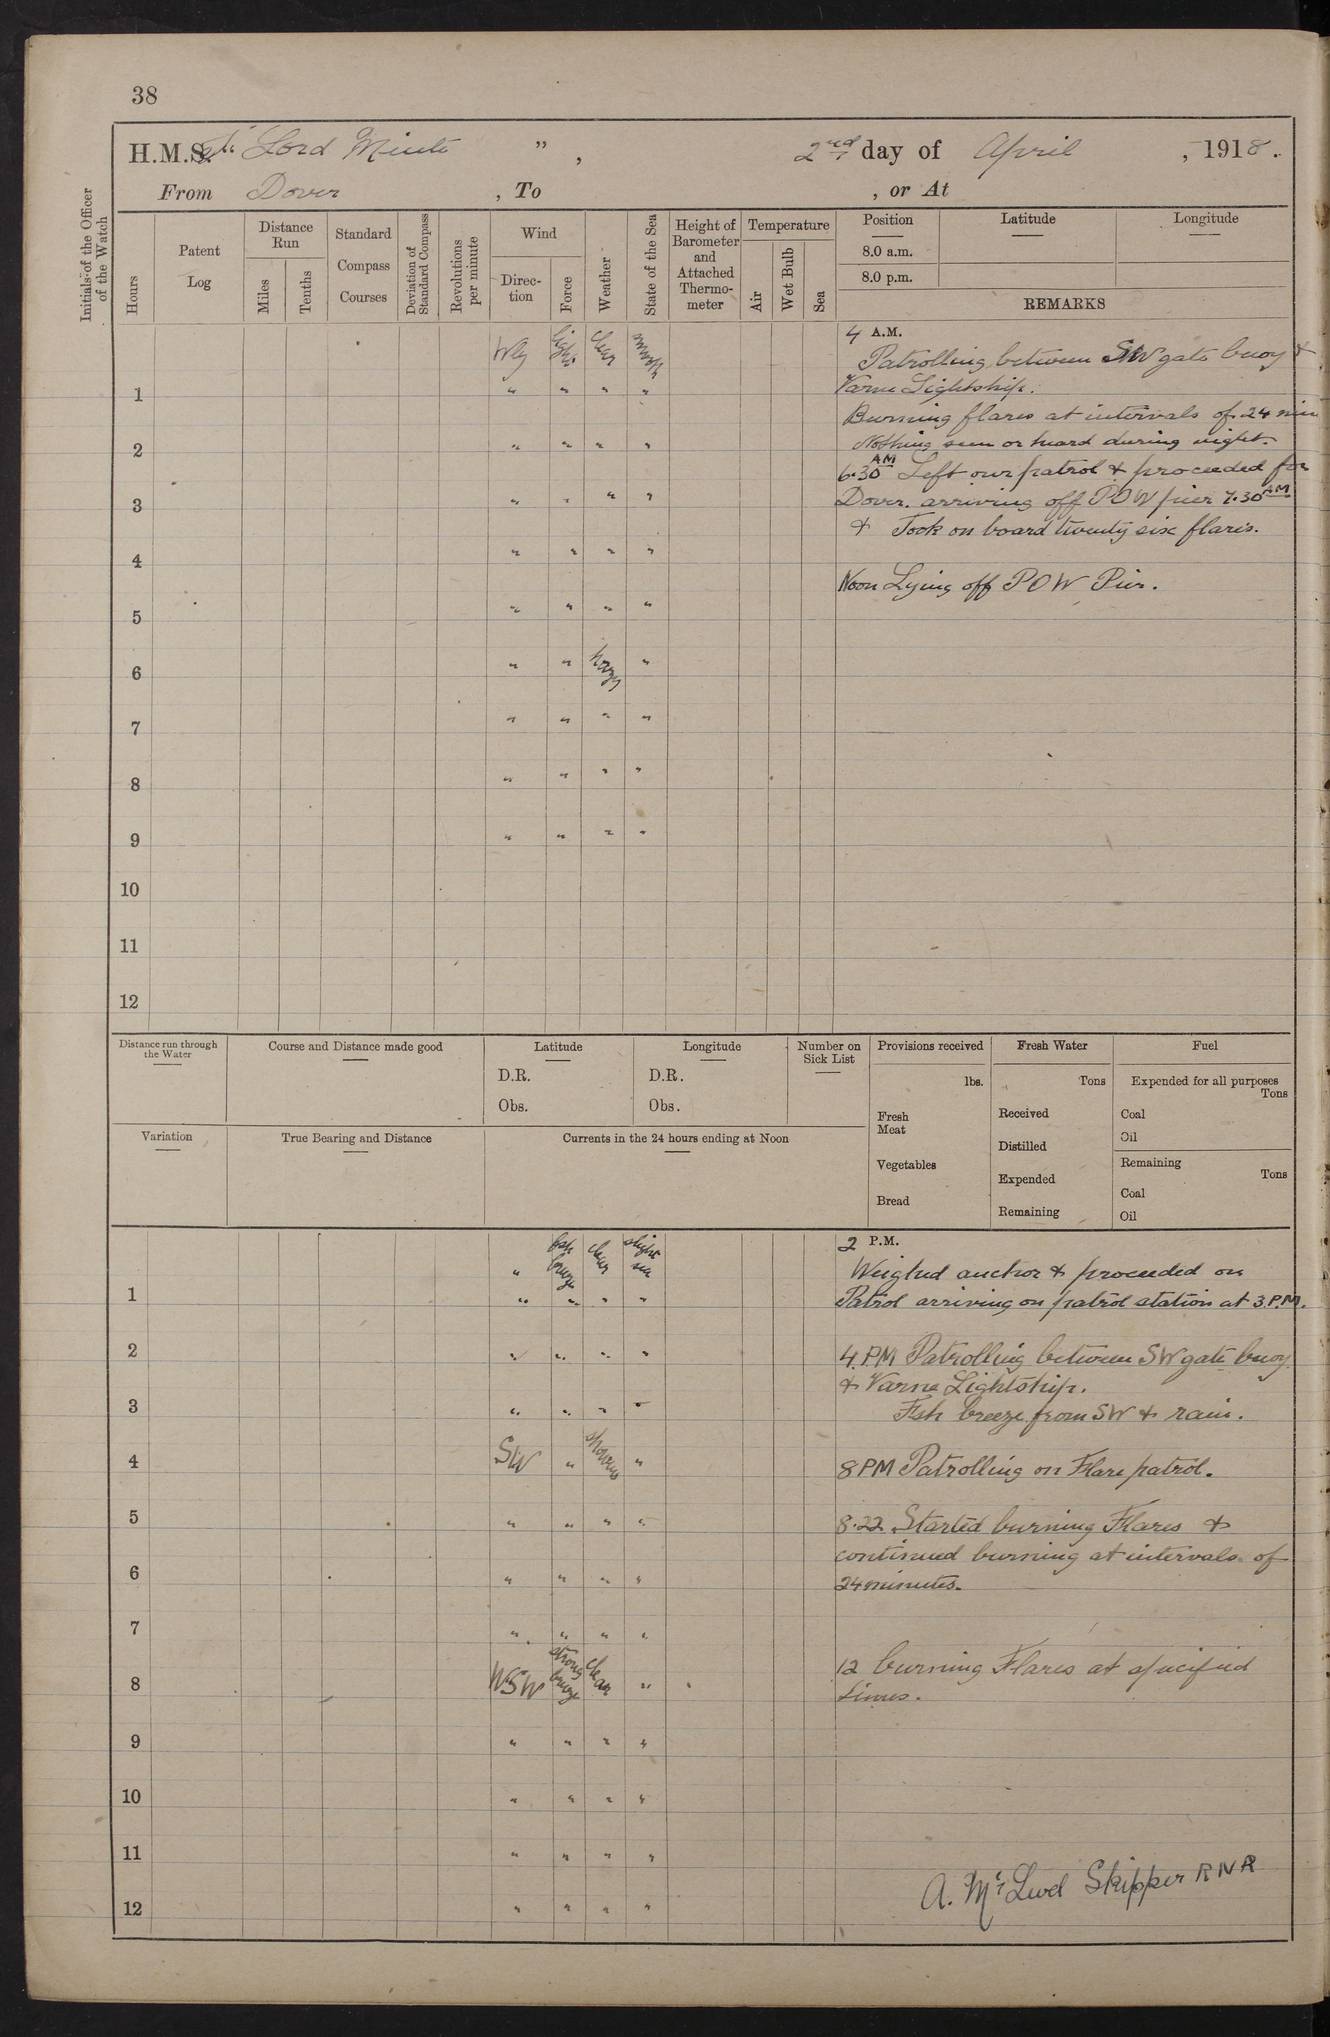 38
H.M.S. Lord Minto ” , 2nd day of April , 1918 .
From Dover , To , or At
Initials of the Officer of the Watch
Hours
Patent Log
Distance Run
Miles
Tenths
Standard Compass Courses
Deviation of Standard Compass
Revolutions per minute
Wind
Direction
Force
Weather
State of the Sea
Height of Barometer and Attached Thermometer
Temperature
Air
Wet Bulb
Sea
Position Latitude Longitude
8.0 a.m.
8.0 p.m.
REMARKS
Wly light clear smooth
4 A.M.
Patrolling between SW gate buoy &
Varne Lightship.
1 " " " "
Burning flares at intervals of 24 min
Nothing seen or heard during night.
2 " " " "
6.30 AM Left our patrol & proceeded for
Dover. arriving off POW pier 7.30 AM
3 " " " "
& Took on board twenty six flares.
4 " " " "
Noon Lying off POW Pier.
5 " " " "
6 " " hazy "
7 " " " "
8 " " " "
9 " " " "
10
11
12
Distance run through the Water
Course and Distance made good
Latitude
D.R.
Obs.
Longitude
D.R.
Obs.
Number on Sick List
Provisions received
lbs.
Fresh Meat
Vegetables
Bread
Fresh Water
Tons
Received
Distilled
Expended
Remaining
Fuel
Expended for all purposes
Tons
Coal
Oil
Remaining
Tons
Coal
Oil
Variation
True Bearing and Distance
Currents in the 24 hours ending at Noon
" fsh breeze clear slight sea
2 P.M.
Weighed anchor & proceeded on
Patrol arriving on patrol station at 3.P.M.
1 " " " "
2 " " " "
4.PM Patrolling between SW gate buoy
& Varne Lightship.
3 " " " "
Fsh breeze from SW & rain.
4 SW " showers "
8 PM Patrolling on Flare patrol.
5 " " " "
8.22 Started burning Flares &
continued burning at intervals of
6 " " " "
24 minutes.
7 " " " "
8 WSW strong breeze clear "
12 burning Flares at specified
times.
9 " " " "
10 " " " "
11 " " " "
A. McLeod Skipper RNR
12 " " " "